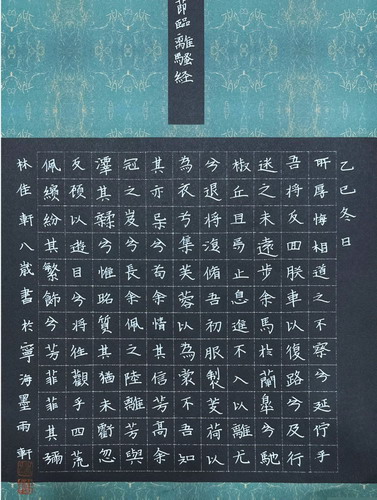 節臨離騷経
乙巳冬日
所厚悔相道之不察兮延佇乎
吾將反回朕車以復路兮及行
迷之未遠步余馬於蘭皋兮馳
椒丘且焉止息進不入以離尤
兮退將復脩吾初服製芰荷以
為衣兮集芙蓉以為裳不吾知
其亦已兮苟余情其信芳高余
冠之岌兮長余佩之陸離芳與
澤其糅兮惟昭質其猶未虧忽
反顧以遊目兮將往觀乎四荒
佩繽紛其繁飾兮芳菲菲其彌
林佳軒八歲書於寧海墨雨軒